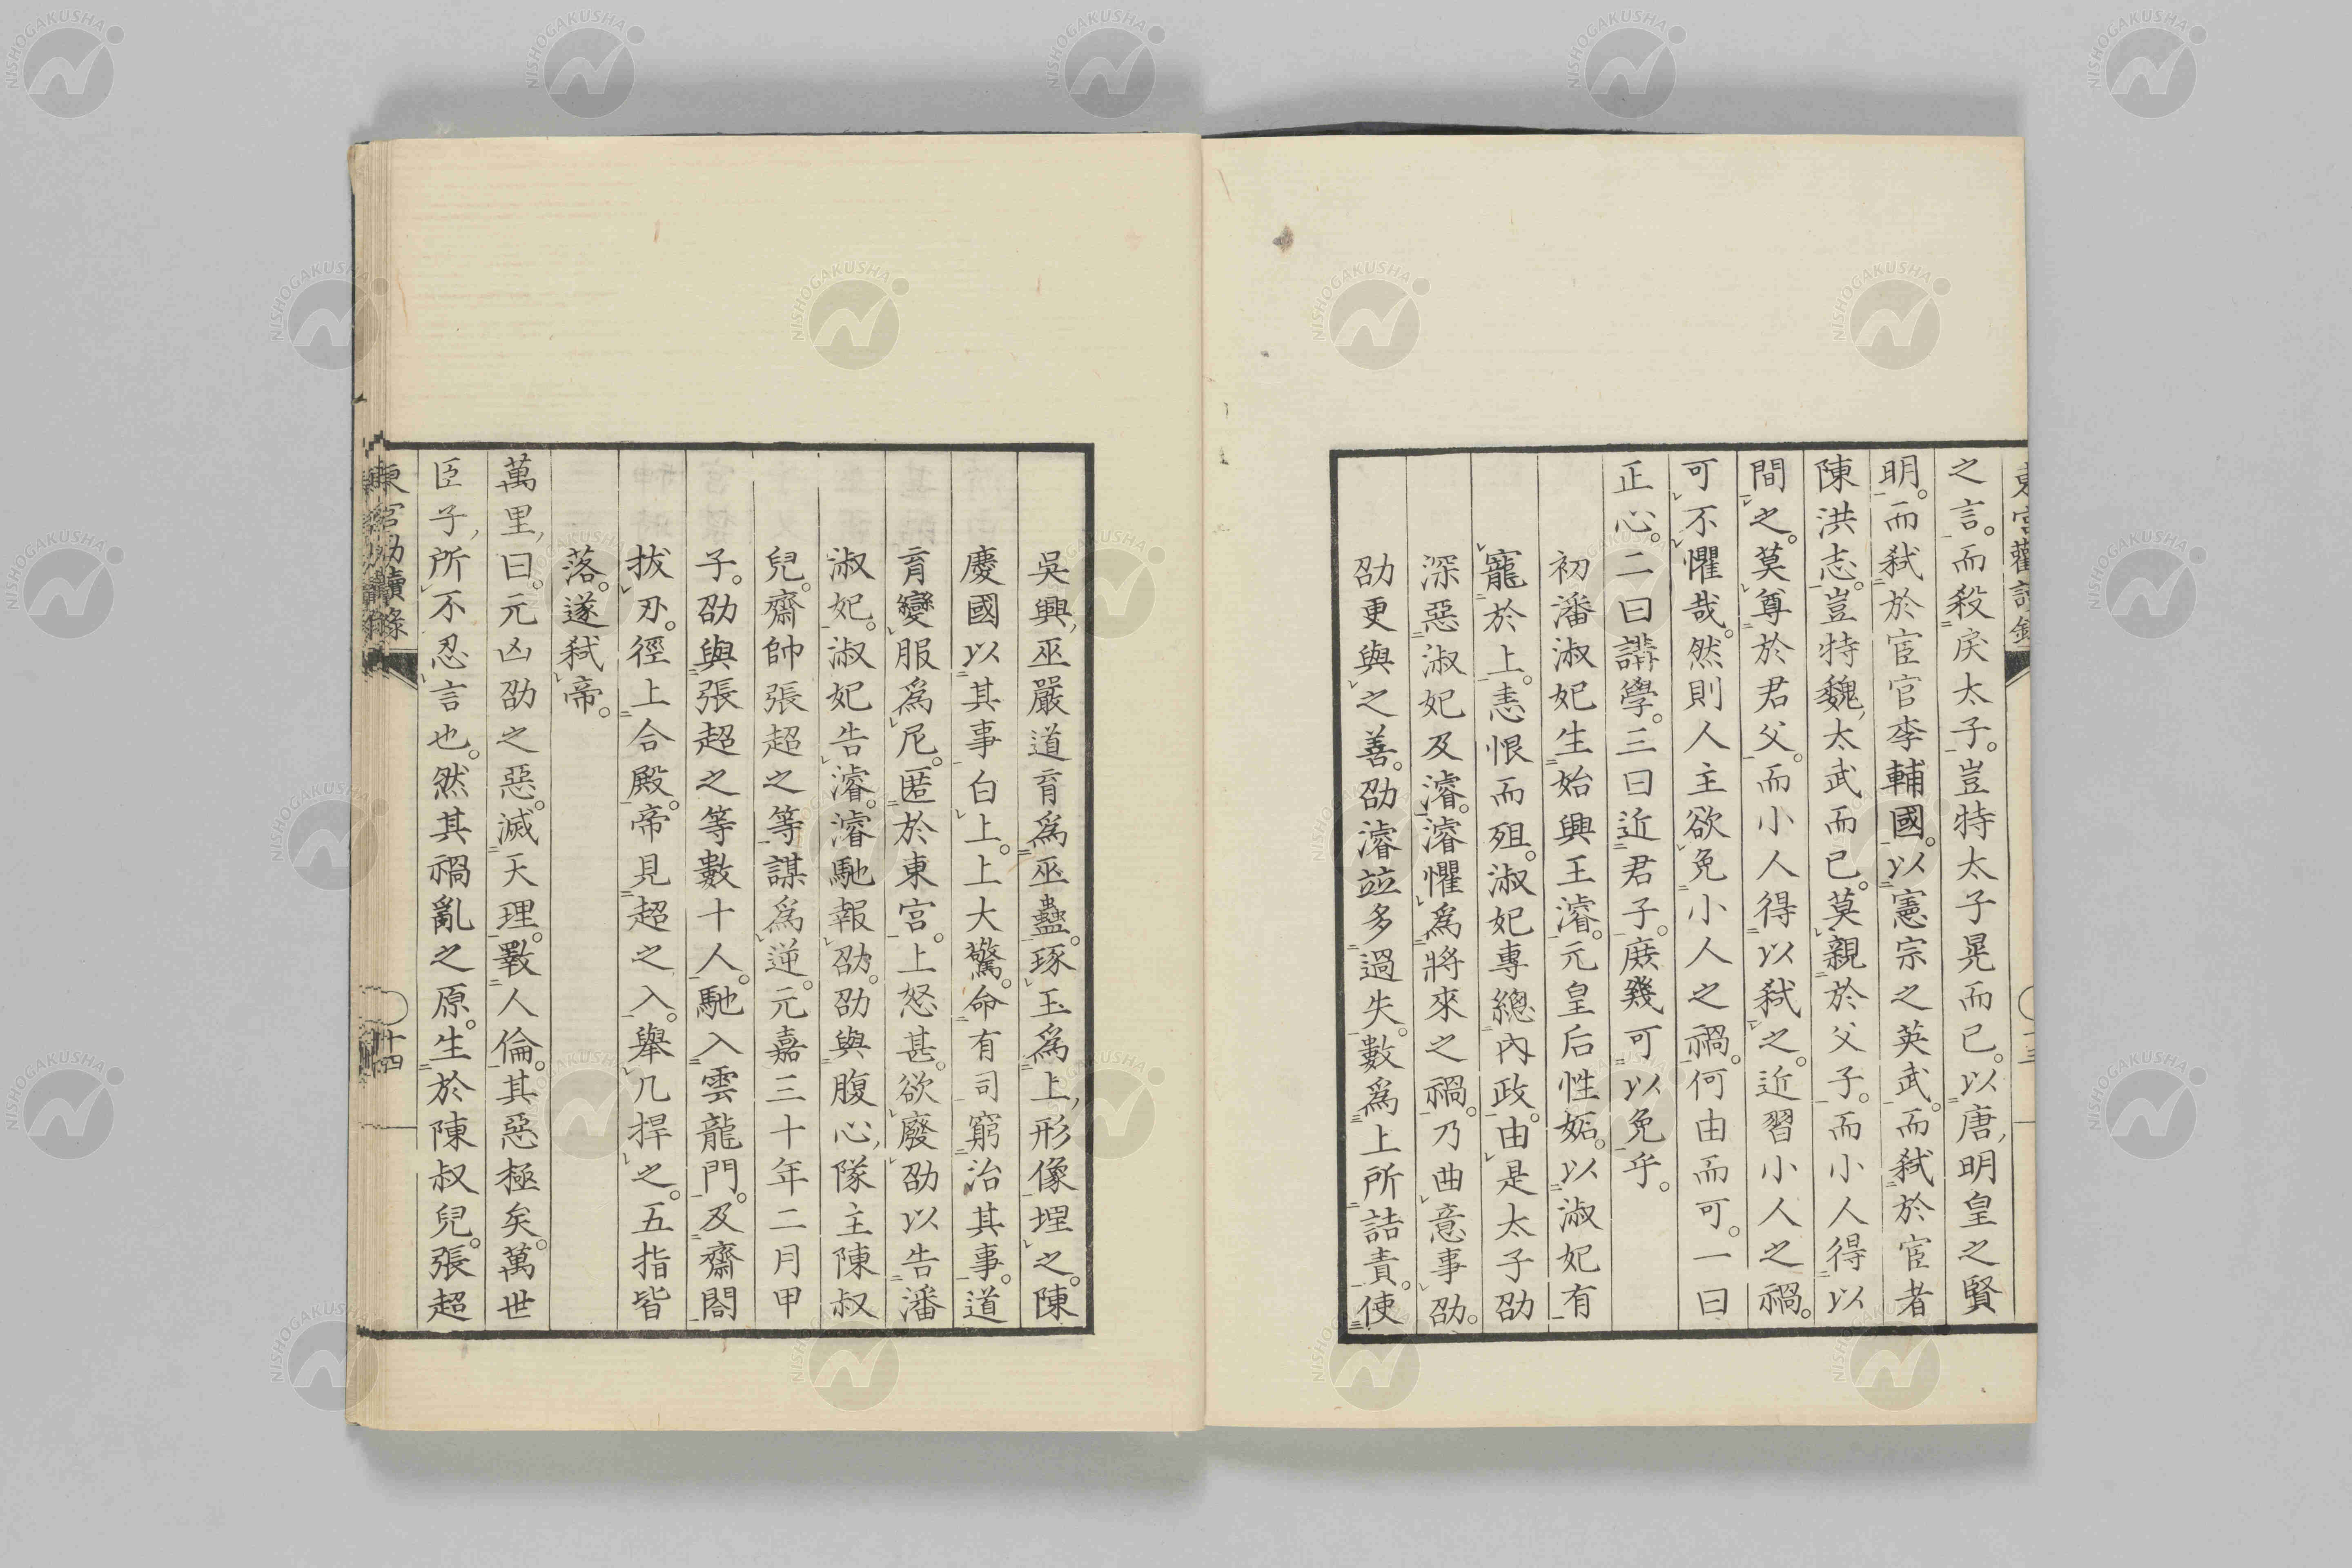 之言。而殺戾太子。豈特太子晃而已。以唐明皇之賢
明。而弑於宦官李輔國。以憲宗之英武。而弑於宦者
陳洪志。豈特魏太武而已。莫親於父子。而小人得以
間之。莫尊於君父。而小人得以弑之。近習小人之禍。
可不懼哉。然則人主欲免小人之禍。何由而可。一曰
正心。二曰講學。三曰近君子。庶幾可以免乎。
初潘淑妃生始興王濬。元皇后性妬。以淑妃有
寵於上。恚恨而殂。淑妃專總內政。由是太子劭
深惡淑妃及濬。濬懼爲將來之禍。乃曲意事劭。
劭更與之善。劭濬竝多過失。數爲上所詰責。使
吳興巫嚴道育爲巫蠱。琢玉爲上形像埋之。陳
慶國以其事白上。上大驚。命有司窮治其事。道
育變服爲尼。匿於東宮。上怒甚。欲廢劭以告潘
淑妃。淑妃告濬。濬馳報劭。劭與腹心隊主陳叔
兒。齋帥張超之等謀爲逆。元嘉三十年二月甲
子。劭與張超之等數十人。馳入雲龍門。及齋閤
拔刃。徑上合殿。帝見超之入。舉几捍之。五指皆
落。遂弑帝。
萬里曰。元凶劭之惡。滅天理。斁人倫。其惡極矣。萬世
臣子所不忍言也。然其禍亂之原。生於陳叔兒。張超
十四
NISHOGAKUSHA